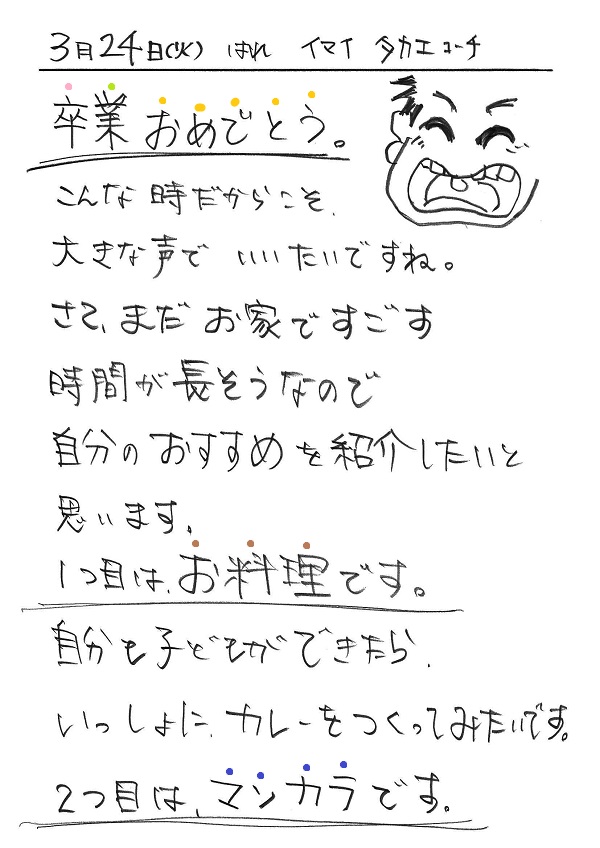 3月24日(火) はれ イマイ タカエ コーチ
卒業おめでとう。
こんな時だからこそ、
大きな声で いいたいですね。
さて、まだ お家ですごす
時間が長そうなので
自分のおすすめを紹介したいと
思います。
1つ目は、お料理です。
自分も子どもができたら、
いっしょに、カレーをつくってみたいです。
2つ目は、マンカラです。